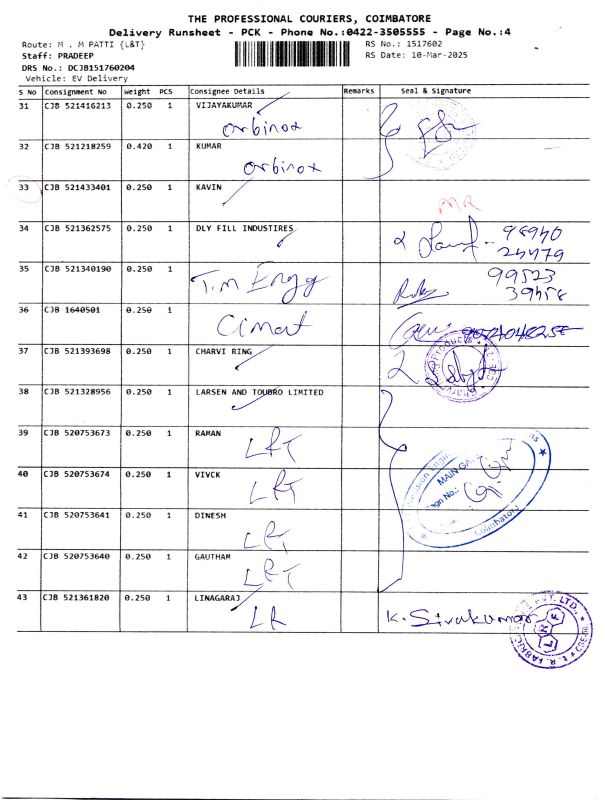 THE PROFESSIONAL COURIERS, COIMBATORE
Delivery Runsheet - PCK - Phone No.:0422-3505555 - Page No.:4
Route: M . M PATTI {L&T}
RS No.: 1517602
Staff: PRADEEP
RS Date: 10-Mar-2025
DRS No.: DCJB151760204
Vehicle: EV Delivery
S No Consignment No Weight PCS Consignee Details Remarks Seal & Signature
31 CJB 521416213 0.250 1 VIJAYAKUMAR
orbinox
32 CJB 521218259 0.420 1 KUMAR
orbinox
33 CJB 521433401 0.250 1 KAVIN
MR
34 CJB 521362575 0.250 1 DLY FILL INDUSTIRES
98940
24479
35 CJB 521340190 0.250 1
T.M Engg
99523
39458
36 CJB 1640501 0.250 1
Cimat
37 CJB 521393698 0.250 1 CHARVI RING
38 CJB 521328956 0.250 1 LARSEN AND TOUBRO LIMITED
39 CJB 520753673 0.250 1 RAMAN
L&T
40 CJB 520753674 0.250 1 VIVCK
L&T
MAIN GATE
Sign No.:
Coimbatore
41 CJB 520753641 0.250 1 DINESH
L&T
42 CJB 520753640 0.250 1 GAUTHAM
L&T
43 CJB 521361820 0.250 1 LINAGARAJ
LR
K. Sivakumar
L R F